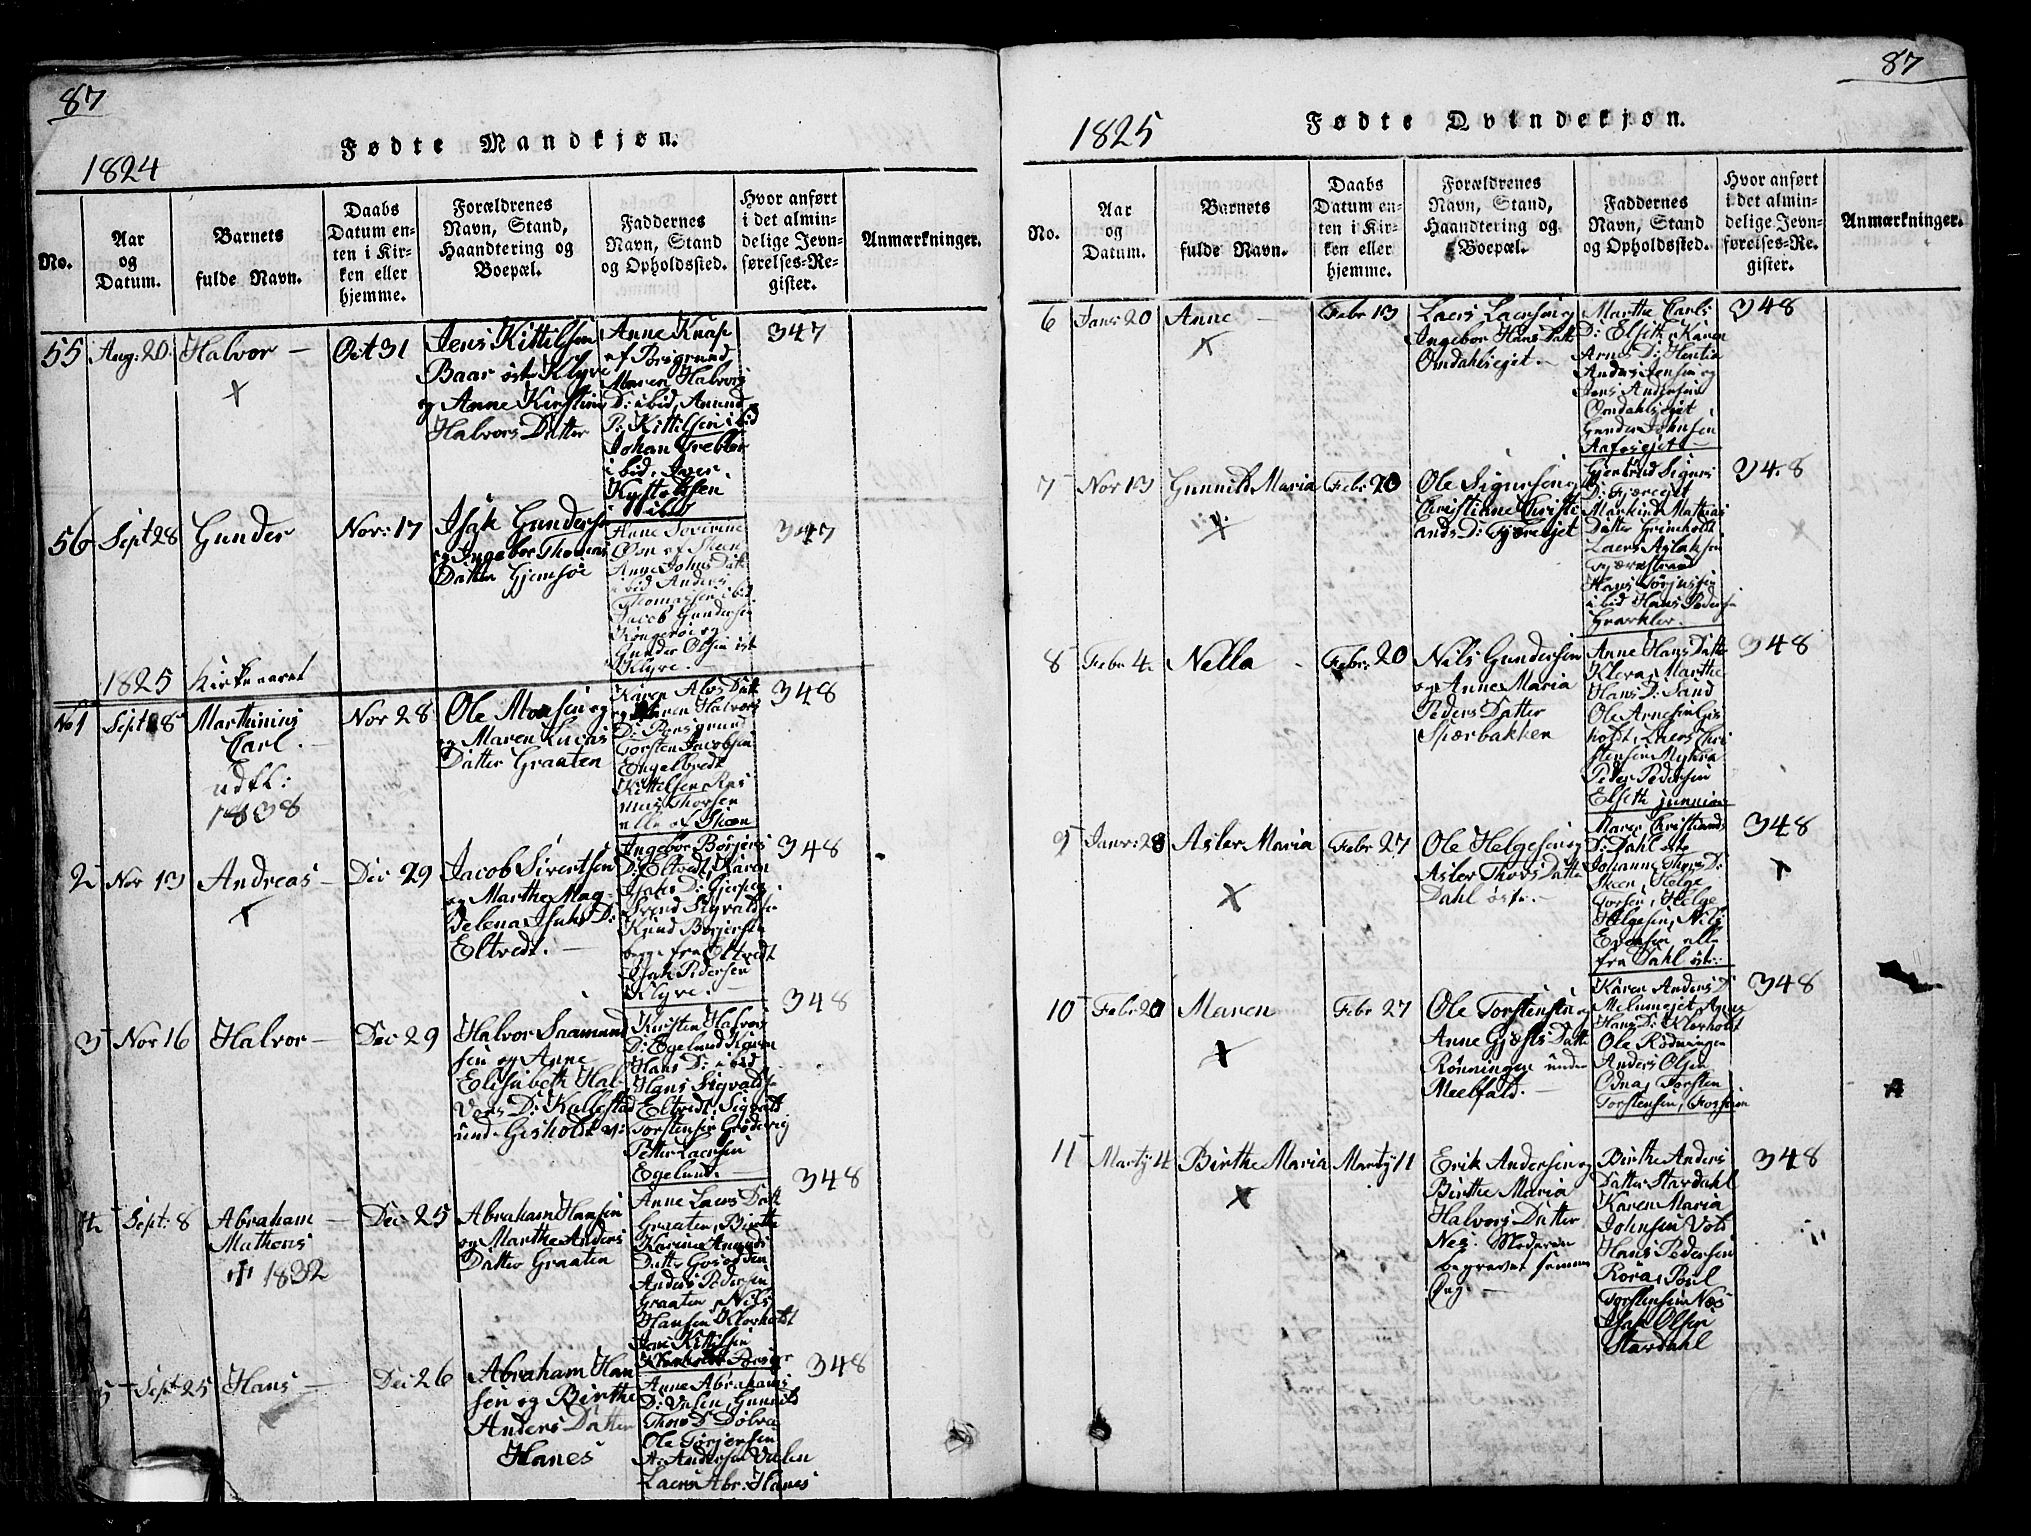 87
Fødte Mandkjøn.
1824
No.
Aar
og
Datum.
Barnets
fulde Navn.
Daabs
Datum en-
ten i Kir-
ken eller
hjemme.
Forældrenes
Navn, Stand,
Haandtering og
Boepæl.
Faddernes
Navn, Stand
og Opholdssted.
Hvor anført
i det almin-
delige Jevn-
førelses-Re-
gister.
Anmærkninger.
55
Aug: 20.
Halvor —
Oct 31
Jens Kittilsen
Baar øst Klyve
og Anne Kirstine
Halvors Datter
Anne Knap
af Porsgrund
Maren Halvors
D: ibid, Amund
P: Kittilsen ibid
Johan Grebber
ibid, Iver
ibid
347
56
Sept 28
Gunder
Nov: 17
Isak Gunders
og Ingebor Thomas
Datter Gjemsøe
Anne Severine
Olsn af Skeen
Anne Johns Datt
ibid Anders
Thomassen ibid
Jacob Gundersen
Gunder Olsen øst
Klyve.
347
1825 Kirkeaaret
No 1
Sept 18
Marthinius
Carl. —
udfl:
1838
Nov 28
Ole Monsen og
og Maren Lucas
Datter Graaten
Karen Alvs Datt
og Maren Halvors
D: Porsgrund
Torsten Jacobsen
Engelbredt
Kittelsen Ras
mus Thorsen
alle af Skeen
348
2
Nov 13
Andreas —
Dec 29
Jacob Sivertsen
og Marthe Mag
delena Isaks D:
Eltvedt. —
Ingebor Børjers
D: Eltvedt, Karen
Isaks D: Gjerpen
Svend Sigvaldse
Knud Børjersen
begge fra Eltvedt
Isak Pedersen
Klyve. —
348
3
Nov 16
Halvor —
Dec 29
Halvor Saamund
sen og Anne
Elisabeth Hal-
vors D: Kallestad
und: Gisholdt v:
Kirsten Halvors
D: Egelund Karen
Hans D: ibid
Hans Sigvaldse
Eltvedt, Sigvald
Torstensen Grøderig
Petter Laersen
Egelund. —
348
4
Sept: 8
Abraham —
Mathens
1832
Dec 25
Abraham Hansen
og Marthe Anders
Datter Graaten
Anne Laers Datt
Graaten, Birthe
Karine Amunds
Datter
Anders Pedersen
Graaten, Nils
Hansen Klovholdt
Jens Kittilsen
348
5
Sept 25
Hans —
Dec 26
Abraham Han
sen og Birthe
Anders Datter
Hanes
Anne Abrahams
D: Valen, Gunnild
Thors D: Dølva
Ole Torjersen
A: Andersen Valen
Laers Abr: Hanes
348
87
Fødte Qvindekjøn.
1825
No.
Aar
og
Datum.
Barnets
fulde Navn.
Daabs
Datum en-
ten i Kir-
ken eller
hjemme.
Forældrenes
Navn, Stand,
Haandtering og
Boepæl.
Faddernes
Navn, Stand
og Opholdssted.
Hvor anført
i det almin-
delige Jevn-
førelses-Re-
gister.
Anmærkninger.
6
Janr 20
Anne —
Febr 13
Laers Laersen og
Ingebor Hans Datt
Omdahlsejet. —
Marthe Carls
D: Elseth, Karen
Arns D:
Anders Jensen og
Jens Andersen
Omdahlsejet
Gunder Johnsen
348
7
Nov 13
Gunnild Maria
Febr 20
Ole Sigursen og
Christiane Christi
ands D: Fjæreejet
Gjertrud Sigurs
D: Fjæreejet
Mathias
Datter Grimholdt
Laers Aslaksen
Fjærestrand
Hans Torjussen
ibid Hans Peders
348
8
Febr 4.
Nella
Febr: 20
Nils Gundersen
og Anne Maria
Peders Datter
Skærbakken
Anne Hans Datte
Kleva, Marthe
Hans D: Sand
Ole Arnesen Gis
holdt, Laers Chri
stensen Myhra
Peder Pedersen
Elseth junnior
348
9
Janr: 28
Asler Maria
Febr 27
Ole Helgesen og
Asler Thors Datte
Dahl øste. —
Maren Christiands
D: Dahl øste
Johanne Thors D:
Skeen, Helge
Torsen, Helge
Helgesen, Nils
Evensen, alle
fra Dahl øst:
348
10
Febr 20
Maren
Febr 27
Ole Torstensen og
Anne Gjæsts Datt
Rønningen under
Meelfald. —
Karen Anders D
Melumejet, Anne
Hans D: Klovholdt
Ole Rødningen
Anders Olsen
Odna, Torsten
Torstensen, Fossum
348
11
Martj 4
Birthe Maria
Martj 11
Erik Andersen og
Birthe Maria
Halvors Datter
Nes. Moderen
begravet samme
Dag. —
Birthe Anders
Datter Stardahl
Karen Maria
Johnsen Vold
Hans Pedersen
Rora, Poul
Torstensen Næs
Isak Olsen
Stardahl
348